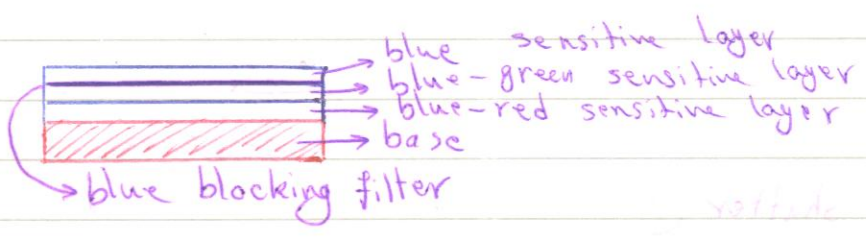 blue sensitive layer
blue-green sensitive layer
blue-red sensitive layer
base
blue blocking filter